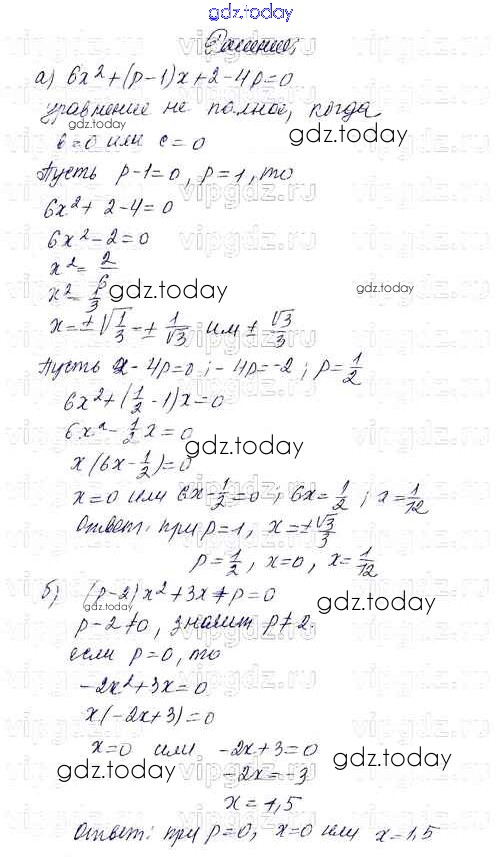 gdz.today
Решение;
а) 6x² + (p-1)x + 2 - 4p = 0
уравнение не полное, когда
в = 0 или с = 0
gdz.today
gdz.today
Пусть p-1=0, p=1, то
6x² + 2 - 4 = 0
6x² - 2 = 0
x² = 2/6
x² = 1/3
gdz.today
gdz.today
x = ±√1/3 = ± 1/√3 или ± √3/3
Пусть 2 - 4p = 0; -4p = -2; p = 1/2
6x² + (1/2 - 1)x = 0
6x² - 1/2 x = 0
gdz.today
x(6x - 1/2) = 0
x = 0 или 6x - 1/2 = 0; 6x = 1/2; x = 1/12
Ответ: при p = 1, x = ± √3/3
p = 1/2, x = 0, x = 1/12
б) (p-2)x² + 3x + p = 0
gdz.today
p - 2 ≠ 0, значит p ≠ 2.
если p = 0, то
gdz.today
-2x² + 3x = 0
x(-2x + 3) = 0
x = 0 или -2x + 3 = 0
gdz.today
-2x = -3
gdz.today
x = 1,5
Ответ: при p = 0, x = 0 или x = 1,5
gdz.today